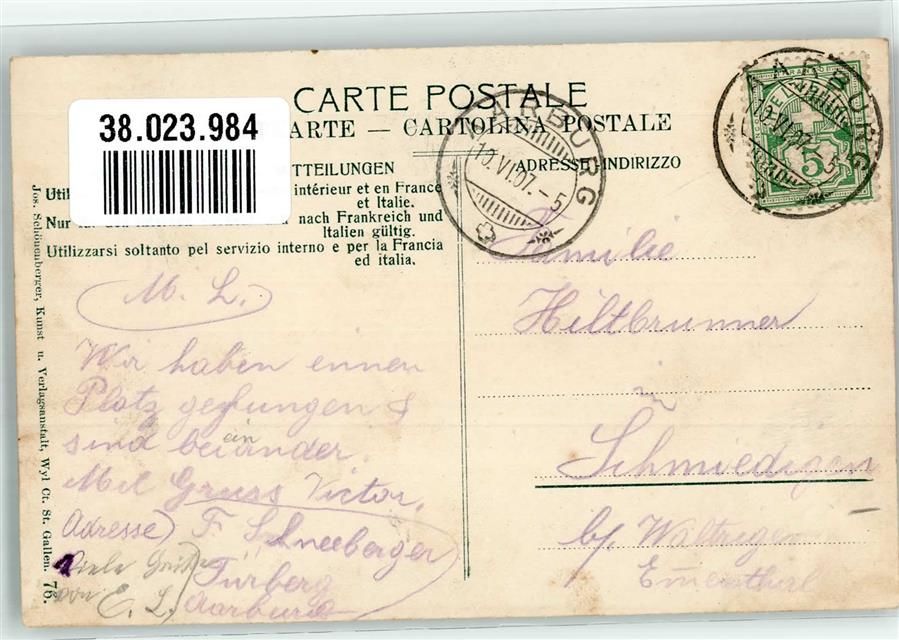 CARTE POSTALE
ARTE — CARTOLINA POSTALE
38.023.984
TTEILUNGEN
Util
intérieur et en France
et Italie.
Nur
nach Frankreich und
Italien gültig.
Utilizzarsi soltanto pel servizio interno e per la Francia
ed italia.
ADRESSE INDIRIZZO
AARBURG
19.VI.07.-5
AARBURG
19.VI.07.-5
5
M. L.
Wir haben einen
Platz gefungen &
sind beieinander.
Mit Gruss Victor.
Adresse) F. Schneeberger
Türberg
Aarburg
Viele Grüße
von E. L.
Familie
Hiltbrunner
in
Schmiedigen
by. Waltrigen
Emmenthal
Jos. Schönenberger, Kunst u. Verlagsanstalt, Wyl Ct. St. Gallen. 76.